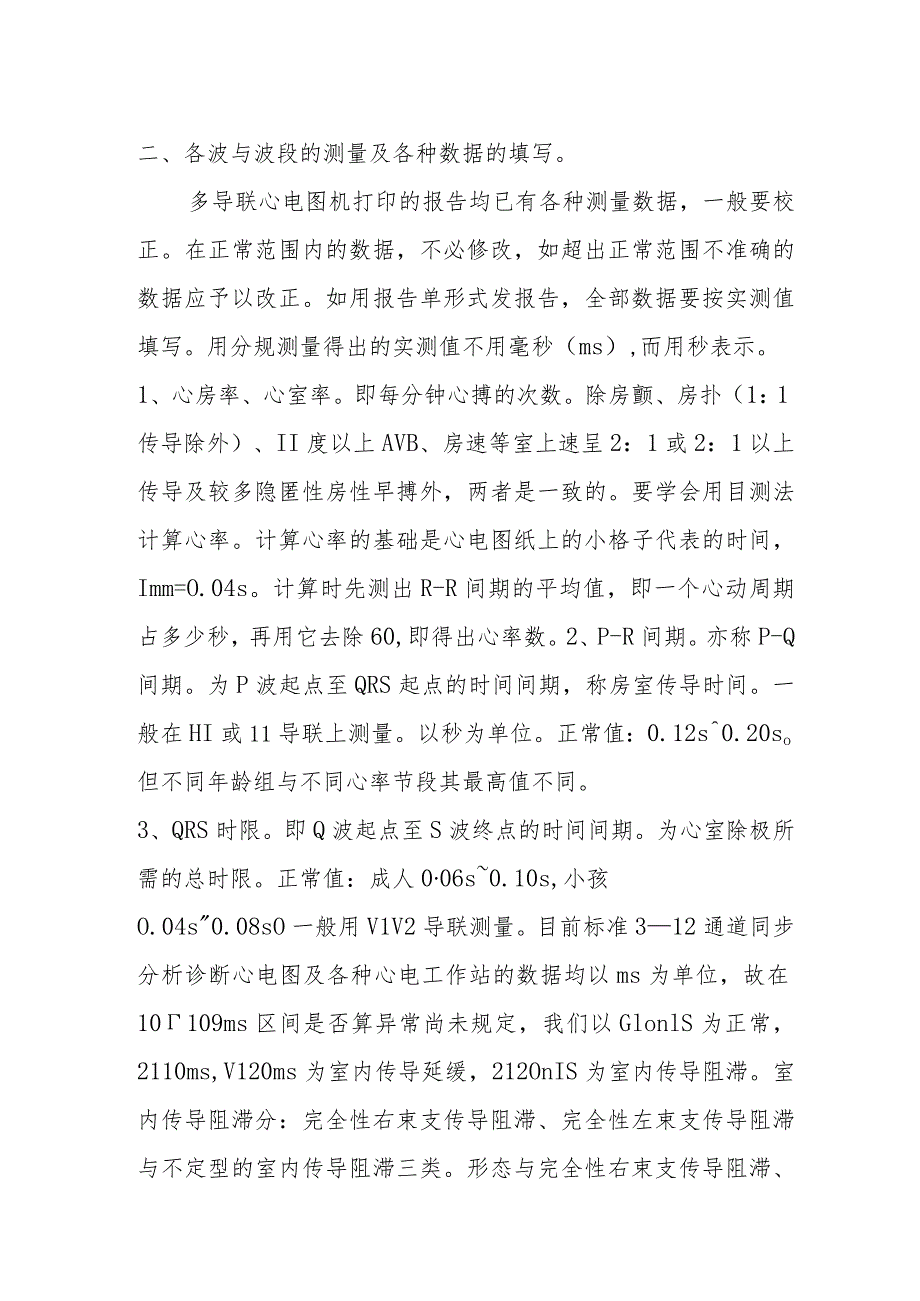 二、各波与波段的测量及各种数据的填写。
多导联心电图机打印的报告均已有各种测量数据，一般要校
正。在正常范围内的数据，不必修改，如超出正常范围不准确的
数据应予以改正。如用报告单形式发报告，全部数据要按实测值
填写。用分规测量得出的实测值不用毫秒（ms）,而用秒表示。
1、心房率、心室率。即每分钟心搏的次数。除房颤、房扑（1：1
传导除外）、II度以上AVB、房速等室上速呈2：1或2：1以上
传导及较多隐匿性房性早搏外，两者是一致的。要学会用目测法
计算心率。计算心率的基础是心电图纸上的小格子代表的时间，
Imm=O.04s。计算时先测出R-R间期的平均值，即一个心动周期
占多少秒，再用它去除60,即得出心率数。2、P-R间期。亦称P-Q
间期。为P波起点至QRS起点的时间间期，称房室传导时间。一
般在HI或11导联上测量。以秒为单位。正常值：0.12s^0.20s。
但不同年龄组与不同心率节段其最高值不同。
3、QRS时限。即Q波起点至S波终点的时间间期。为心室除极所
需的总时限。正常值：成人0·06s~0.10s,小孩
0.04s"0.08sO一般用V1V2导联测量。目前标准3—12通道同步
分析诊断心电图及各种心电工作站的数据均以ms为单位，故在
10Γ109ms区间是否算异常尚未规定，我们以GlonlS为正常，
2110ms,V120ms为室内传导延缓，2120nIS为室内传导阻滞。室
内传导阻滞分：完全性右束支传导阻滞、完全性左束支传导阻滞
与不定型的室内传导阻滞三类。形态与完全性右束支传导阻滞、